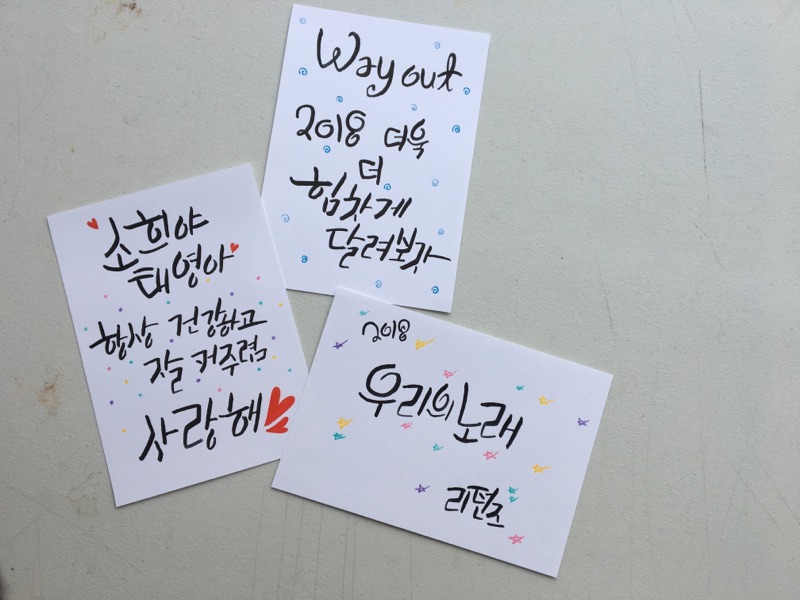 Way out
2018 더욱
더
힘차게
달려보자
소희야
태영아
항상 건강하고
잘 커주렴
사랑해
2018
우리의 노래
리턴즈